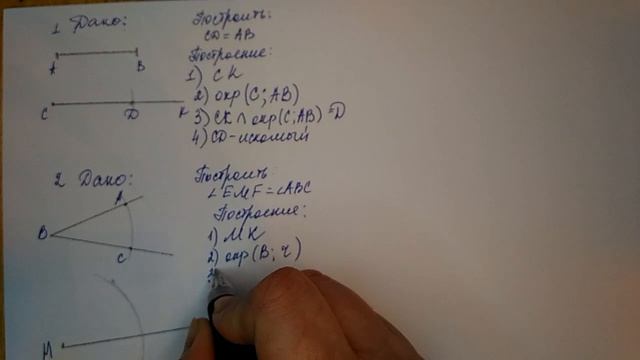 1 Дано:
Построить:
CD = AB
A B
Построение:
1) CK
2) окр (C; AB)
C D K
3) CK ∩ окр (C; AB) = D
4) CD - искомый
2 Дано:
Построить:
∠EMF = ∠ABC
A
B
C
Построение:
1) MK
2) окр (B; r)
3)
M